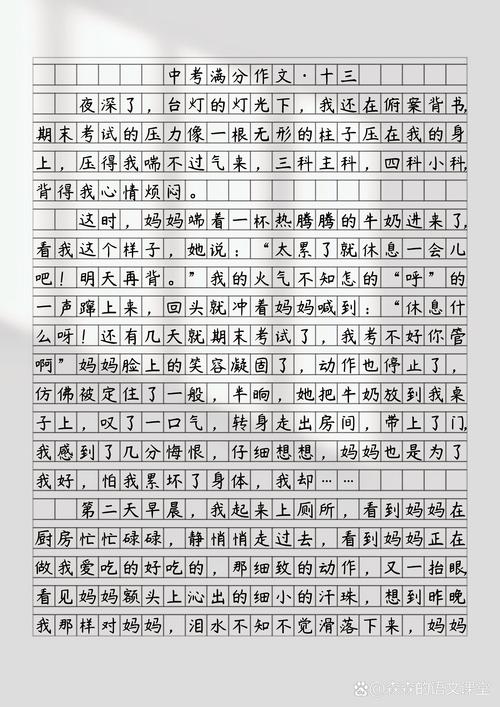 中考满分作文·十三
夜深了，台灯的灯光下，我还在俯案背书，
期末考试的压力像一根无形的柱子压在我的身
上，压得我喘不过气来，三科主科，四科小科，
背得我心情烦闷。
这时，妈妈端着一杯热腾腾的牛奶进来了，
看我这个样子，她说：“太累了就休息一会儿
吧！明天再背。”我的火气不知怎的“呼”的
一声蹿上来，回头就冲着妈妈喊到：“休息什
么呀！还有几天就期末考试了，我考不好你管
啊”妈妈脸上的笑容凝固了，动作也停止了，
仿佛被定住了一般，半晌，她把牛奶放到我桌
子上，叹了一口气，转身走出房间，带上了门，
我感到了几分悔恨，仔细想想，妈妈也是为了
我好，怕我累坏了身体，我却……
第二天早晨，我起来上厕所，看到妈妈在
厨房忙忙碌碌，静悄悄走过去，看到妈妈正在
做我爱吃的好吃的，那细致的动作，又一抬眼，
看见妈妈额头上沁出的细小的汗珠，想到昨晚
我那样对妈妈，泪水不知不觉滑落下来，妈妈
森森的语文课堂